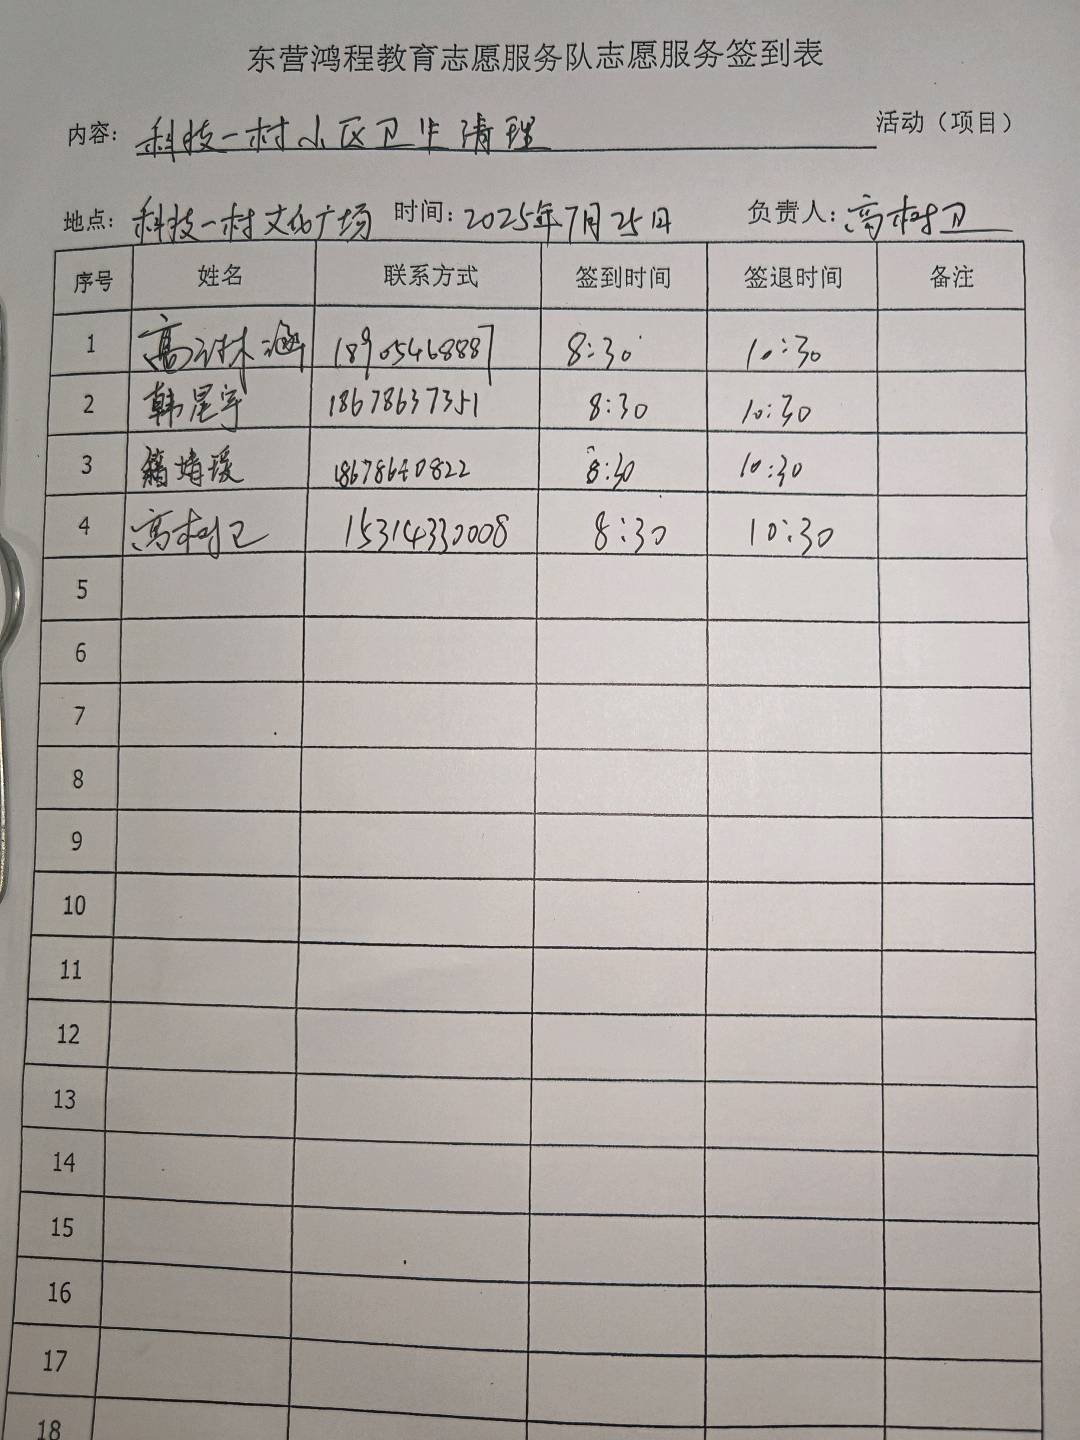 东营鸿程教育志愿服务队志愿服务签到表
内容: 科技一村小区卫生清理 活动（项目）
地点: 科技一村文化广场 时间: 2025年7月25日 负责人: 高树卫
序号 姓名 联系方式 签到时间 签退时间 备注
1 高 涵 18905468887 8:30 10:30
2 韩星宇 18678637351 8:30 10:30
3 婧瑗 18678640822 8:30 10:30
4 高树卫 15314330008 8:30 10:30
5
6
7
8
9
10
11
12
13
14
15
16
17
18